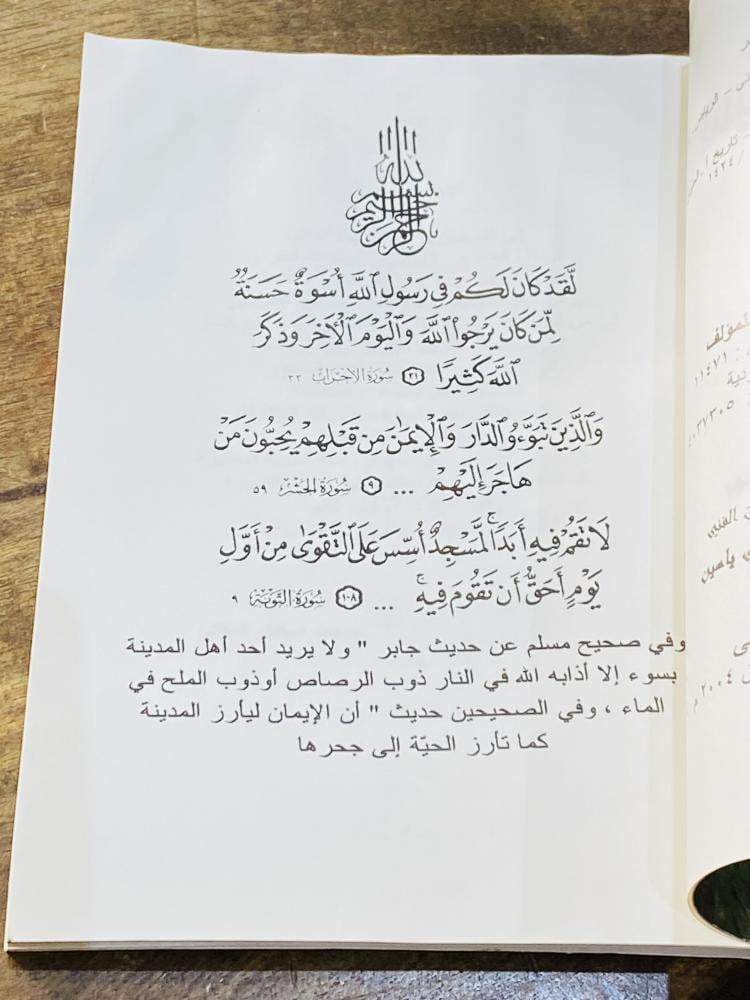 بسم الله الرحمن الرحيم
لَّقَدْ كَانَ لَكُمْ فِى رَسُولِ ٱللَّهِ أُسْوَةٌ حَسَنَةٌ
لِّمَن كَانَ يَرْجُوا۟ ٱللَّهَ وَٱلْيَوْمَ ٱلْأَخِرَ وَذَكَرَ
ٱللَّهَ كَثِيرًا ٢١ سُورَةُ الأحزاب ٣٣
وَٱلَّذِينَ تَبَوَّءُو ٱلدَّارَ وَٱلْإِيمَٰنَ مِن قَبْلِهِمْ يُحِبُّونَ مَنْ
هَاجَرَ إِلَيْهِمْ ... ٩ سُورَةُ الحَشْر ٥٩
لَا تَقُمْ فِيهِ أَبَدًاۚ لَّمَسْجِدٌ أُسِّسَ عَلَى ٱلتَّقْوَىٰ مِنْ أَوَّلِ
يَوْمٍ أَحَقُّ أَن تَقُومَ فِيهِۚ ... ١٠٨ سُورَةُ التوبَة ٩
وفي صحيح مسلم عن حديث جابر " ولا يريد أحد أهل المدينة
بسوء إلا أذابه الله في النار ذوب الرصاص أوذوب الملح في
الماء ، وفي الصحيحين حديث " أن الإيمان ليأرز المدينة
كما تأرز الحيّة إلى جحرها
١٤٢٤/
لمؤلف
: ١١٤٧١
٤٠٣٧٣٠٥
الفني
ياسين
٢٠٠٤ م